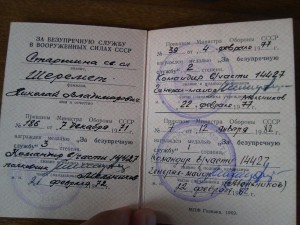 ЗА БЕЗУПРЕЧНУЮ СЛУЖБУ
В ВООРУЖЕННЫХ СИЛАХ СССР
Старшина св сл
Шеремет
Николай Владимирович
имя и отчество
Приказом Министра Обороны СССР
№ 186 от 7 декабря 71
награжден медалью „За безупречную
службу" 3 степени
Командир в/части 14427
полковник
21 февраля 72
Приказом Министра Обороны СССР
№ 38 от 4 февраля 77
награжден медалью „За безупречную
службу" 2 степени
Командир в/части 14427
Генерал-майор
22 февраля 77
Приказом Министра Обороны СССР
12 января 82
награжден медалью „За безупречную
службу" 1 степени
Командир в/части 14427
Генерал-майор
22 февраля